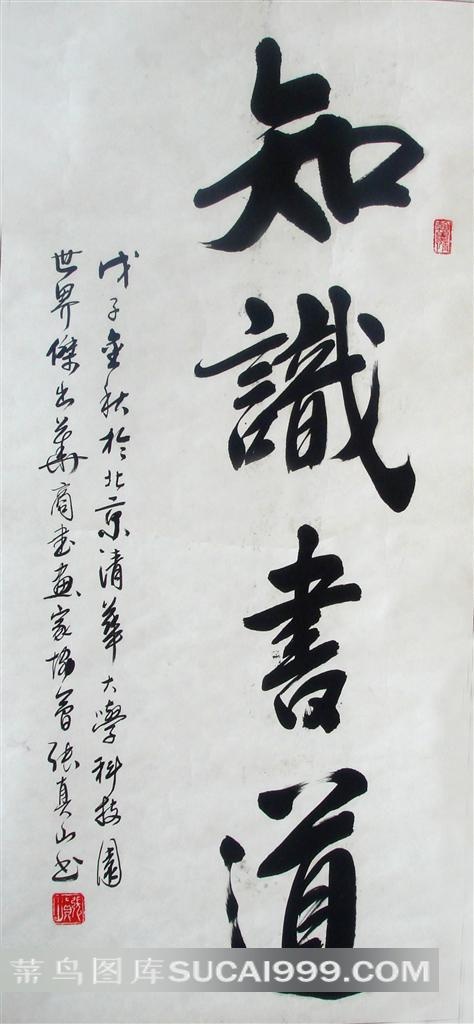 知識書道
戊子金秋於北京清華大學科技園
世界傑出華商書畫家協會張真山書
菜鸟图库SUCAI999.COM